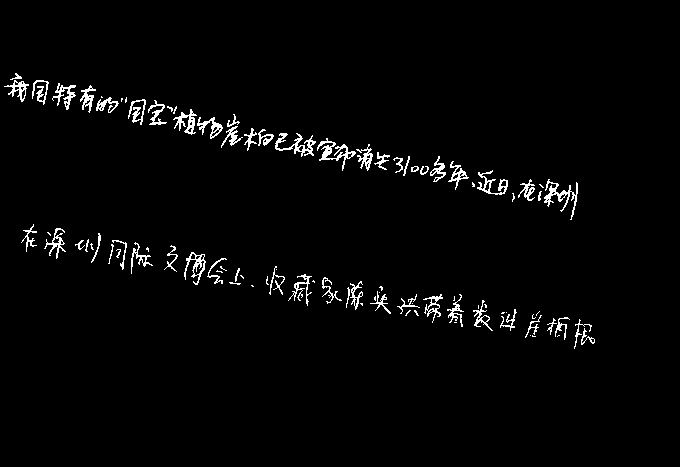 我国特有的“国宝”植物崖柏已被宣布消失了100多年、近日,在深圳
在深圳国际文博会上、收藏家陈奕洪带着数件崖柏根